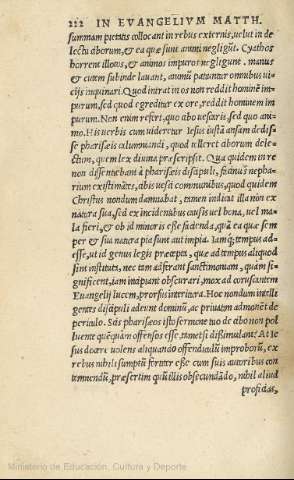 212 IN EVANGELIVM MATTH.
summam pietatis collocant in rebus externis, uelut in de
lectu ciborum, & ea quæ sunt animi negligūt. Cyathos
horrent illotos, & animos impuros negligunt. manus
& cutem subinde lauant, animū patiuntur omnibus ui-
cijs inquinari. Quod intrat in os non reddit hominē im-
purum, sed quod egreditur ex ore, reddit hominem im
purum. Non enim refert, quo cibo uescaris, sed quo ani-
mo. His uerbis cum uideretur Iesus iustā ansam dedis-
se pharisæis calumniandi, quod uelleret ciborum delec-
tum, quem lex diuina præscripsit. Qua quidem in re
non dissentiebant à pharisæis discipuli, facinus nepha-
rium existimātes, cibis uesci communibus, quod quidem
Christus nondum damnabat, tamen indicat illa non ex
natura sua, sed ex incidentibus causis uel bona, uel ma-
la fieri, & ob id minoris esse facienda, quā ea quæ sem
per & sua natura pia sunt aut impia. Iamq́; tempus ad-
esse, ut id genus legis præcepta, quæ ad tempus aliquod
sint instituta, nec tam adferant sanctimoniam, quàm si-
gnificent, iam incipiant obscurari, mox ad coruscantem
Euangelij lucem, prorsus interitura. Hoc nondum intelli
gentes discipuli adeunt dominū, ac priuatim admonēt de
periculo. Scis pharisæos isto sermone tuo de cibo non pol
luente quenquam offensos esse, tametsi dissimulant? At Ie
sus docere uolens aliquando offendiculū improborū, ex
rebus nihili sumptū, fortiter esse cum suis autoribus con
temnendū, præsertim qui illis obsecundādo, nihil aliud
proficias,
Ministerio de Educación, Cultura y Deporte